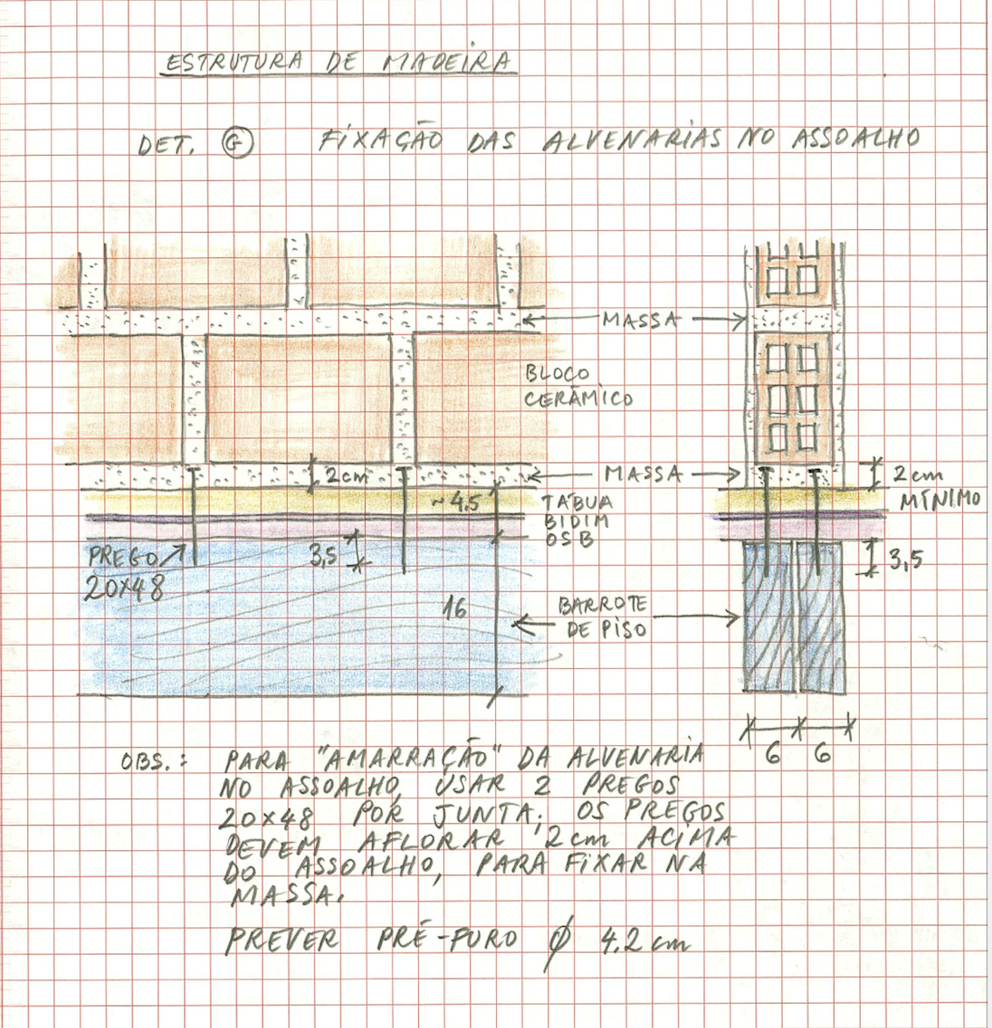 ESTRUTURA DE MADEIRA
DET. G FIXAÇÃO DAS ALVENARIAS NO ASSOALHO
MASSA
BLOCO
CERÂMICO
2cm
MASSA
2cm
MÍNIMO
~4.5
TÁBUA
BIDIM
OSB
PREGO
20x48
3,5
3,5
16
BARROTE
DE PISO
6 6
OBS.: PARA "AMARRAÇÃO" DA ALVENARIA
NO ASSOALHO, USAR 2 PREGOS
20x48 POR JUNTA; OS PREGOS
DEVEM AFLORAR 2cm ACIMA
DO ASSOALHO, PARA FIXAR NA
MASSA.
PREVER PRÉ-FURO Ø 4.2 cm